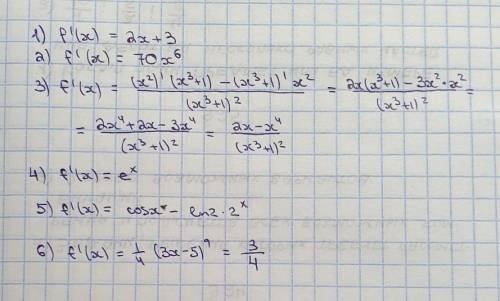 1) f'(x) = 2x+3
2) f'(x) = 70x⁶
3) f'(x) = (x²)'(x³+1) - (x³+1)'x² / (x³+1)² = 2x(x³+1) - 3x²·x² / (x³+1)² =
= 2x⁴+2x-3x⁴ / (x³+1)² = 2x-x⁴ / (x³+1)²
4) f'(x) = eˣ
5) f'(x) = cosx - ln2·2ˣ
6) f'(x) = 1/4 (3x-5)⁹ = 3/4